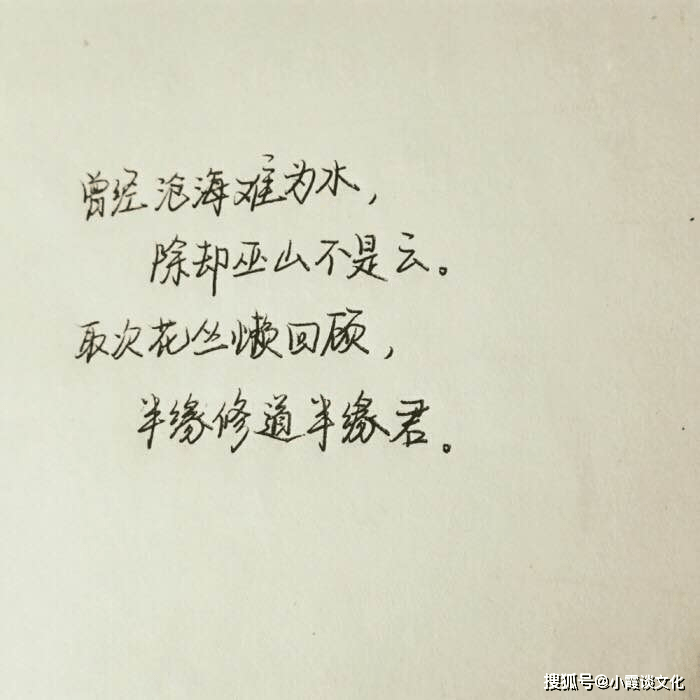 曾经沧海难为水，
除却巫山不是云。
取次花丛懒回顾，
半缘修道半缘君。
搜狐号@小霞谈文化